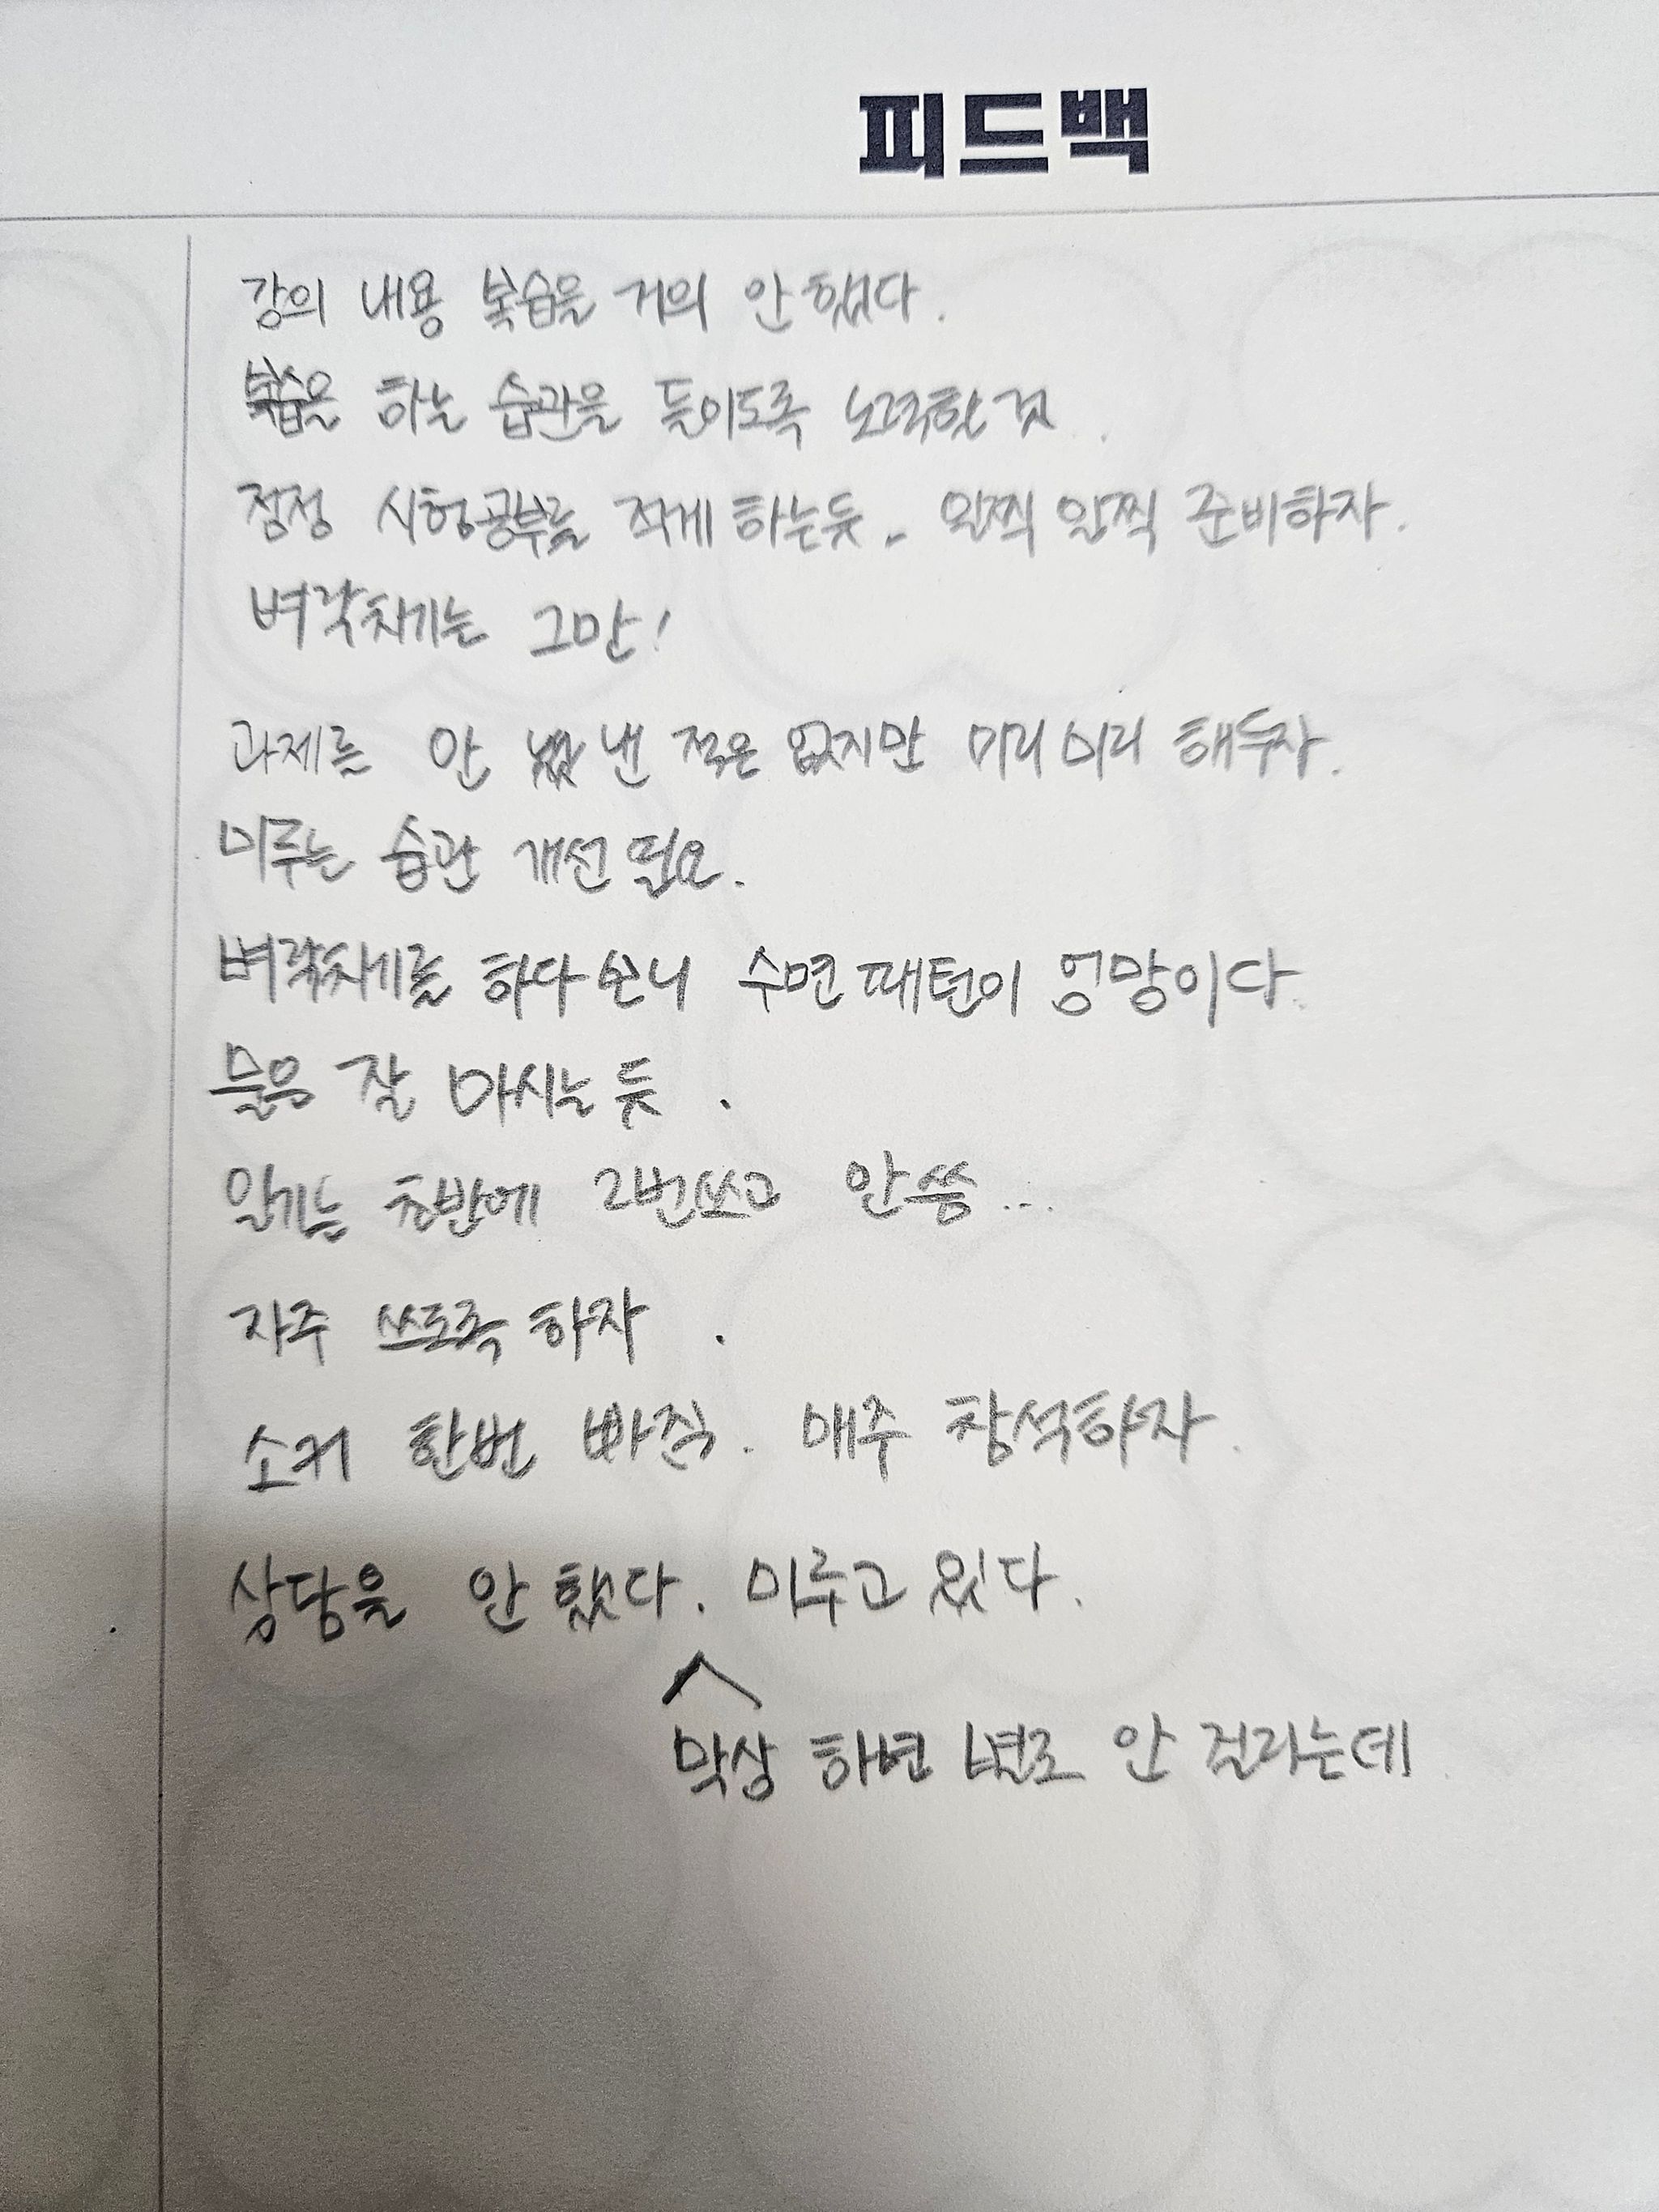 피드백
강의 내용 복습을 거의 안 했다.
복습을 하는 습관을 들이도록 노력할 것.
점점 시험공부를 적게 하는듯. 일찍 일찍 준비하자.
벼락치기는 그만!
과제를 안 낸 적은 없지만 미리 미리 해두자.
미루는 습관 개선 필요.
벼락치기를 하다 보니 수면패턴이 엉망이다.
물은 잘 마시는 듯.
일기는 초반에 2번쓰고 안 씀...
자주 쓰도록 하자.
소커 한번 빠짐. 매주 참석하자.
상담을 안 했다. 미루고 있다.
막상 하면 별로 안 걸리는데